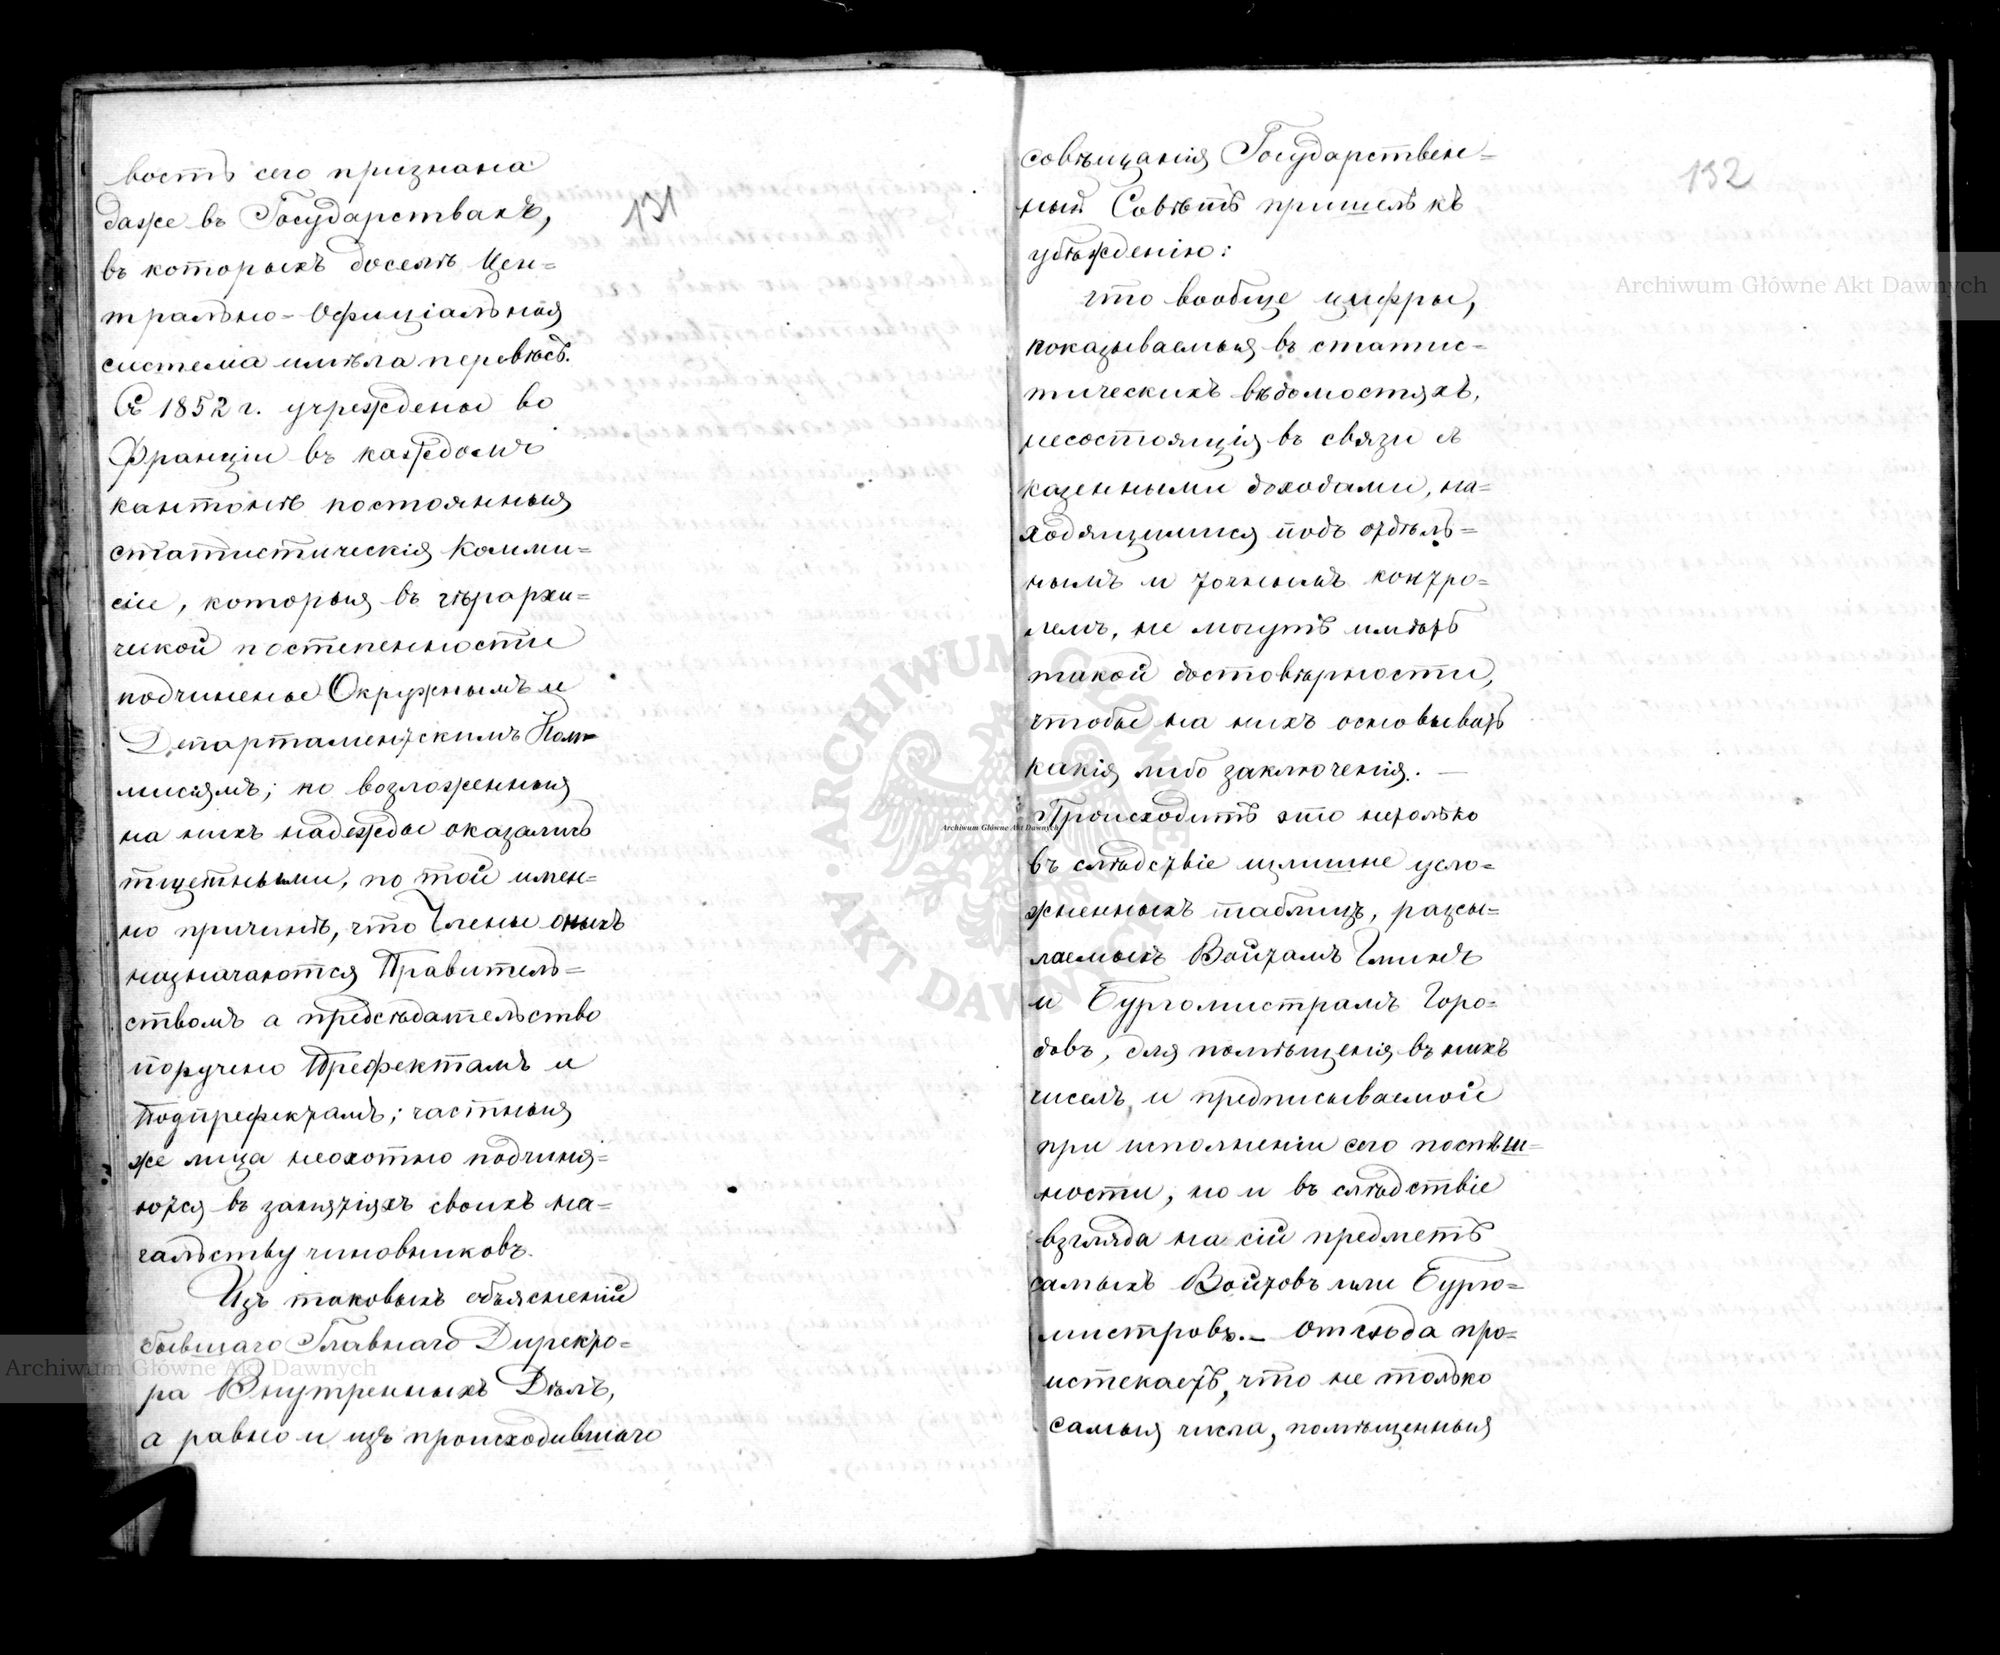 131
вость сего признана
даже въ Государствахъ,
въ которыхъ доселѣ Цен=
трально-Офиціальная
система имѣла перевѣсъ.
Съ 1852 г. учреждены во
Франціи въ каждомъ
кантонѣ постоянныя
статистическія Комми=
сіи, которыя въ іерархи=
чекой постепенности
подчинены Окружнымъ и
Департаментскимъ Ком=
мисіямъ; но возложенныя
на нихъ надежды оказались
тщетными, по той имен=
но причинѣ, что Члены оныхъ
назначаются Правитель=
ствомъ а предсѣдательство
поручено Префектамъ и
Подпрефектамъ; частныя
же лица неохотно подчиня=
ются въ занятіяхъ своихъ на=
чальству чиновниковъ.
Изъ таковыхъ объясненій
бывшаго Главнаго Директо=
ра Внутренныхъ Дѣлъ,
а равно и изъ происходившаго
132
совѣщанія Государствен=
ный Совѣтъ пришелъ къ
убѣжденію:
что вообще цифры,
показываемыя въ статис=
тическихъ вѣдомостяхъ,
несостоящія въ связи съ
казенными доходами, на=
ходящимися подъ отдѣль=
нымъ и точнымъ контро=
лемъ, не могутъ имѣть
такой достовѣрности,
чтобы на нихъ основывать
какія либо заключенія. —
Происходитъ это нетолько
въ слѣдствіе излишне усло=
жненныхъ таблицъ, разсы=
лаемыхъ Войтамъ Гминъ
и Бургомистрамъ Горо=
довъ, для помѣщенія въ нихъ
чиселъ, и предписываемой
при исполненіи сего поспѣш=
ности, но и въ слѣдствіе
взгляда на сій предметъ
самыхъ Войтовъ или Бурго=
мистровъ.— Отсюда про=
истекаетъ, что не только
самыя числа, помѣщенныя
Archiwum Główne Akt Dawnych
Archiwum Główne Akt Dawnych
Archiwum Główne Akt Dawnych
· ARCHIWUM GŁÓWNE · AKT DAWNYCH